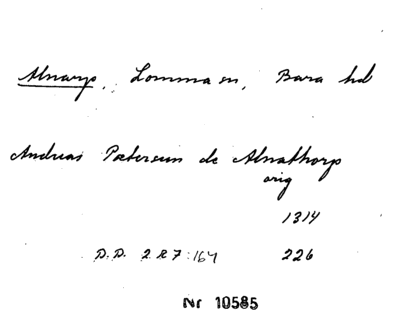 Alnarp, Lomma sn, Bara hd
Andreas Pætersun de Alnathorp
orig
1314
D.D. 2 R 7:164 226
Nr 10585